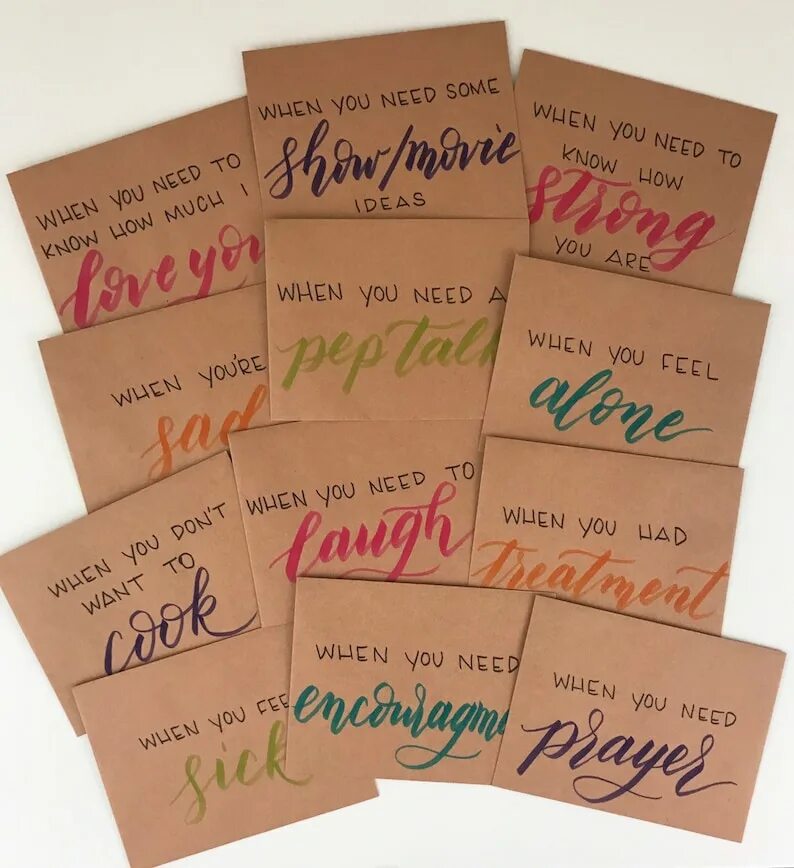 WHEN YOU NEED SOME
show/movie
IDEAS
WHEN YOU NEED TO
KNOW HOW
strong
YOU ARE
WHEN YOU NEED TO
KNOW HOW MUCH I
love you
WHEN YOU NEED A
pep talk
WHEN YOU FEEL
alone
WHEN YOU'RE
sad
WHEN YOU NEED TO
laugh
WHEN YOU HAD
treatment
WHEN YOU DON'T
WANT TO
cook
WHEN YOU NEED
encouragme
WHEN YOU NEED
prayer
WHEN YOU FEE
sick